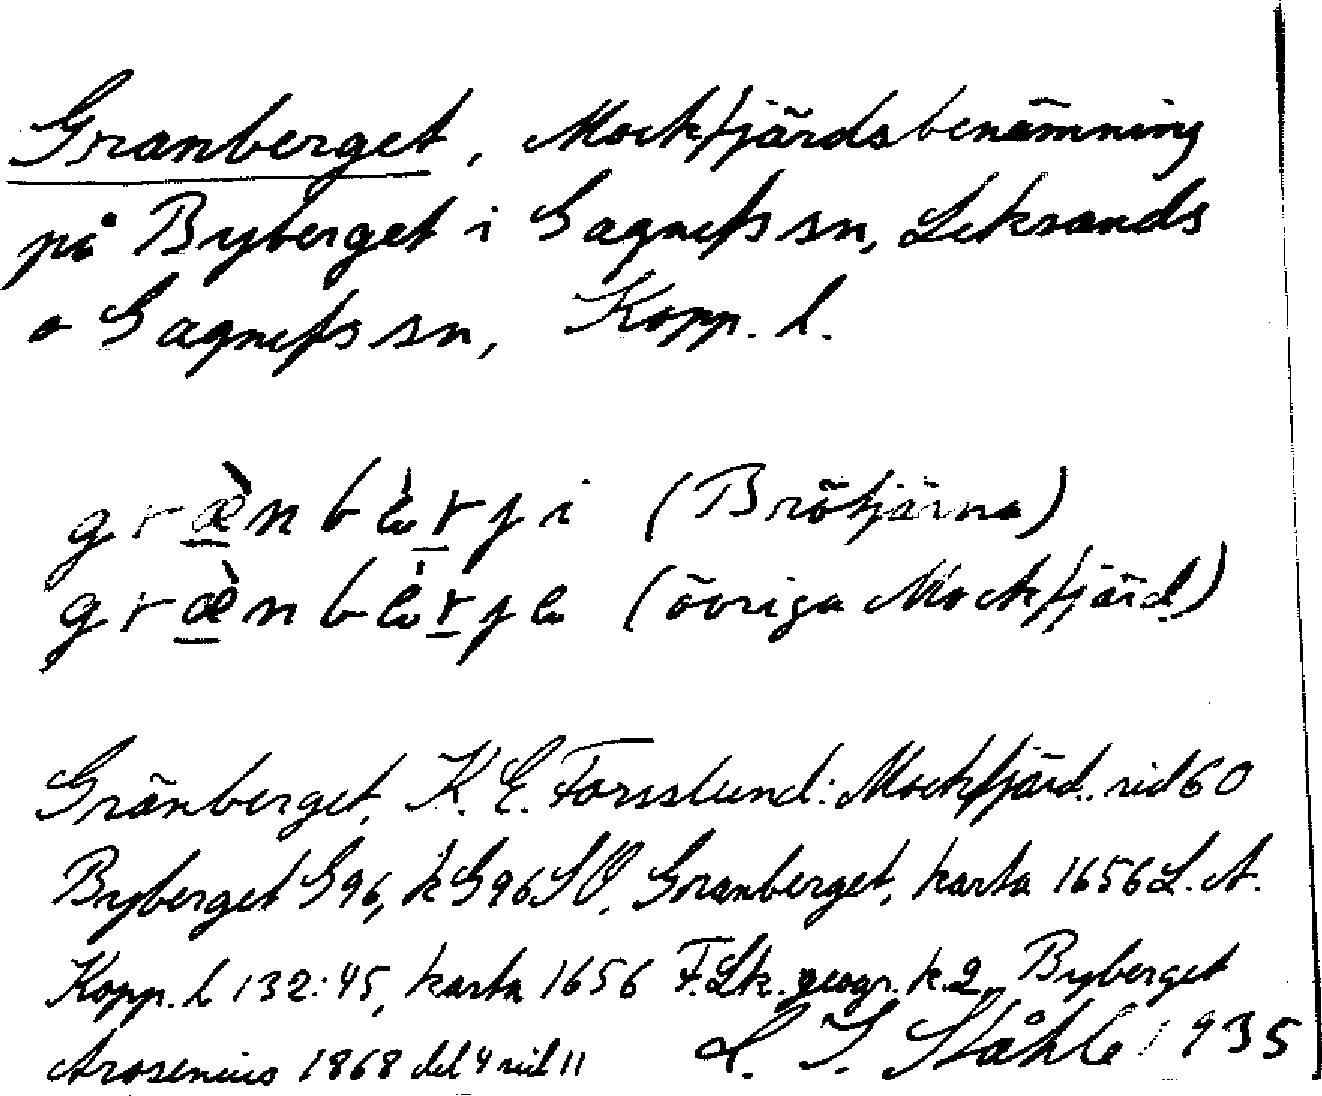 Granberget, Mockfjärdsbenämning
på Byberget i Gagnefs sn, Leksands
o Gagnefs sn, Kopp. l.
græ̀nbèrji (Brötjärna)
græ̀nbèrje (övriga Mockfjärd)
Gränberget, K. E. Forsslund: Mockfjärd. sid 60
Byberget G96, k G96 SV, Granberget, karta 1656 L. A.
Kopp. l 132:45, karta 1656 F. Lk. geogr. k. 2, Byberget
Arosenius 1868 del 4 sid 11
Ståhle 1935